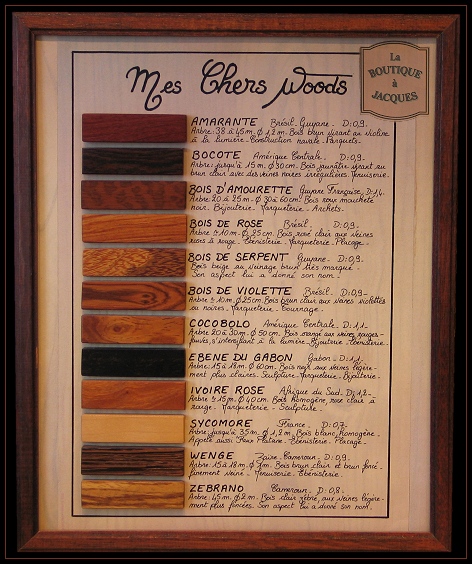 Mes Chers Woods
La
BOUTIQUE
à
JACQUES
AMARANTE Brésil. Guyane. D:0,9.
Arbre: 38 à 45m. Ø 1,2m. Bois brun virant au violine
à la lumière. Construction navale. Parquets.
BOCOTE Amérique Centrale. D:0,9.
Arbre: jusqu'à 15m. Ø 30cm. Bois jaunâtre virant au
brun clair avec des veines noires irrégulières. Menuiserie.
BOIS D'AMOURETTE Guyane Française. D:1,4.
Arbre: 20 à 25m. Ø 30 à 60cm. Bois roux moucheté
noir. Bijouterie. Marqueterie. Archets.
BOIS DE ROSE Brésil. D:0,9.
Arbre 5.10m. Ø 25cm. Bois rosé clair aux veines
roses à rouge. Ebénisterie. Marqueterie. Placage.
BOIS DE SERPENT Guyane. D:0,9.
Bois beige au veinage brun très marqué.
Son aspect lui a donné son nom.
BOIS DE VIOLETTE Brésil. D:0,9.
Arbre 5.10m. Ø 25cm. Bois brun clair aux veines violettes
ou noires. Marqueterie. Tournage.
COCOBOLO Amérique Centrale. D:1,1.
Arbre 20 à 30m. Ø 50cm. Bois orangé aux veines rouges-
s'intensifiant à la lumière. Bijouterie. Ebénisterie.
EBENE DU GABON Gabon. D:1,1.
Arbre: 15 à 18m. Ø 60cm. Bois noir aux veines légère-
ment plus claires. Sculpture. Marqueterie. Bijouterie.
IVOIRE ROSE Afrique du Sud. D:1,2.
Arbre 5.15m. Ø 40cm. Bois homogène, rose clair à
rouge. Marqueterie. Sculpture.
SYCOMORE France. D:0,7.
Arbre: jusqu'à 35m. Ø 1,2m. Bois blanc, homogène.
Appelé aussi Faux Platane. Ebénisterie. Placage.
WENGE Zaïre. Cameroun. D:0,9.
Arbre: 15 à 18m. Ø 1m. Bois brun clair et brun foncé-
finement veiné. Menuiserie. Ebénisterie.
ZEBRANO Cameroun. D:0,8.
Arbre: 45m. Ø 2m. Bois clair zébré, aux veines légère-
ment plus foncées. Son aspect lui a donné son nom.